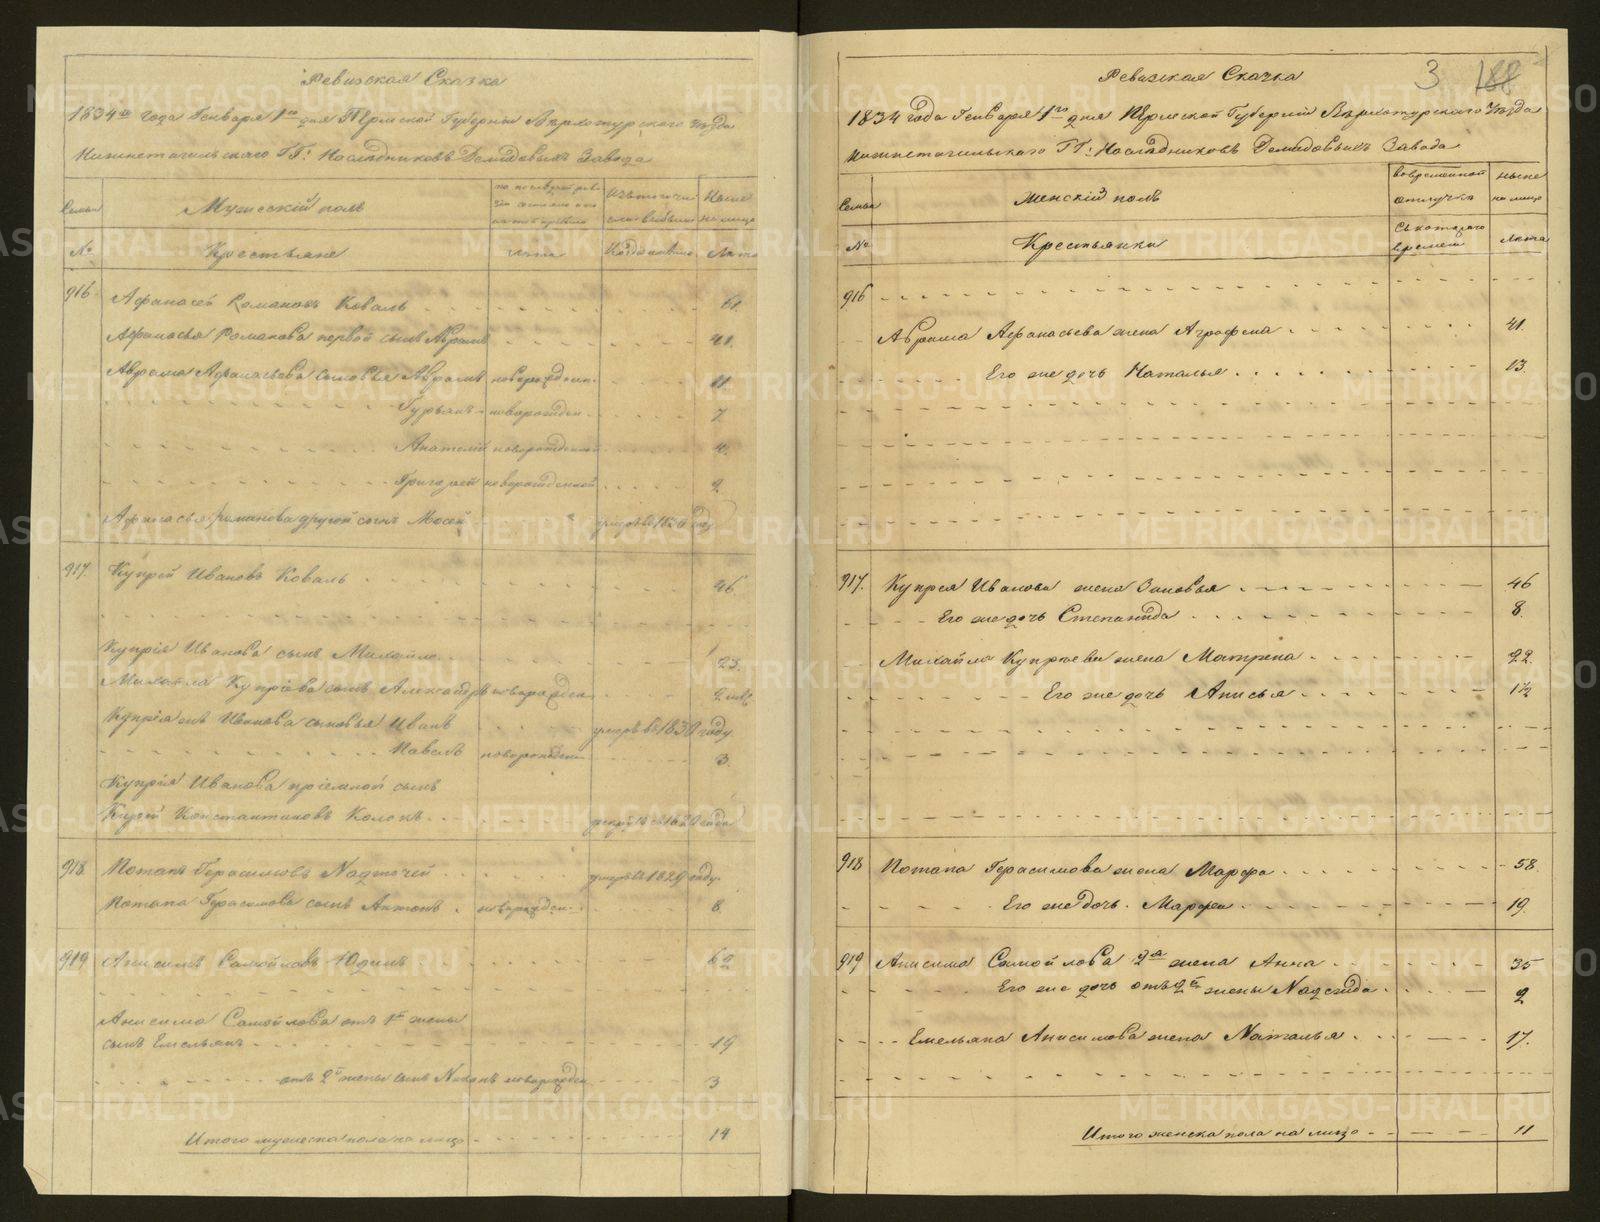 Ревизская Сказка
1834го года Генваря 1го дня Пермской Губернiи Верхотурского Уезда
Нижнетагильскаго ГГ: Наследниковъ Демидовыхъ Завода
Семьи
Мужескiй полъ
по последней реви
Изъ того числа выбыли
Ныне на лицо
№
Крестьяне
лета
Когда именно
Лета
916
Афанасей Романовъ Коваль 61.
Афанасья Романова первой сынъ Абрамъ 41.
Абрама Афанасьева сыновья Абрамъ новорожден. 11.
Гурьянъ новорожден. 7
Анатолiй новорожденной 4.
Григорей новорожденной 2
Афанасья Романова другой сынъ Мосей году
917.
Купрей Ивановъ Коваль 46
Купрiя Иванова сынъ Михайло 23.
Михайла Купрiева сынъ Александръ новорожден.
Купрiя жъ Иванова сыновья Иванъ умеръ въ 1830 году
Павелъ новорожден 3.
Купрiя Иванова прiемной сынъ
Константиновъ
918
Потапъ Герасимовъ Надточей умеръ въ 1829 году
Потапа Герасимова сынъ Антонъ новорожден. 8.
919
Анисимъ Самойловъ Юдинъ 62
Анисима Самойлова отъ 1й жены
сынъ Емельянъ 19
отъ 2й жены сынъ новорожден 3
Итого мужеска пола на лицо 14
Ревизская Сказка
3 188
1834 года Генваря 1го дня Пермской Губернiи Верхотурскаго Уезда
Нижнетагильскаго ГГ: Наследниковъ Демидовыхъ Завода
Семьи
Женскiй полъ
во временной отлучке
ныне на лицо
№
Крестьянки
Съ котораго времени
лета
916
Абрама Афанасьева жена Аграфена 41.
Его же дочь Наталья 13.
917.
Купрея Иванова жена Зиновья 46
Его же дочь Степанида 8.
Михайла Купреева жена Матрена 22.
Его же дочь Анисья 1½
918
Потапа Герасимова жена Марфа 58.
Его же дочь Марфа 19.
919
Анисима Самойлова 2я жена Анна 35
Его же дочь отъ 2й жены Надежда 2
Емельяна Анисимова жена Наталья 17.
Итого женска пола на лицо 11
METRIKI.GASO-URAL.RU